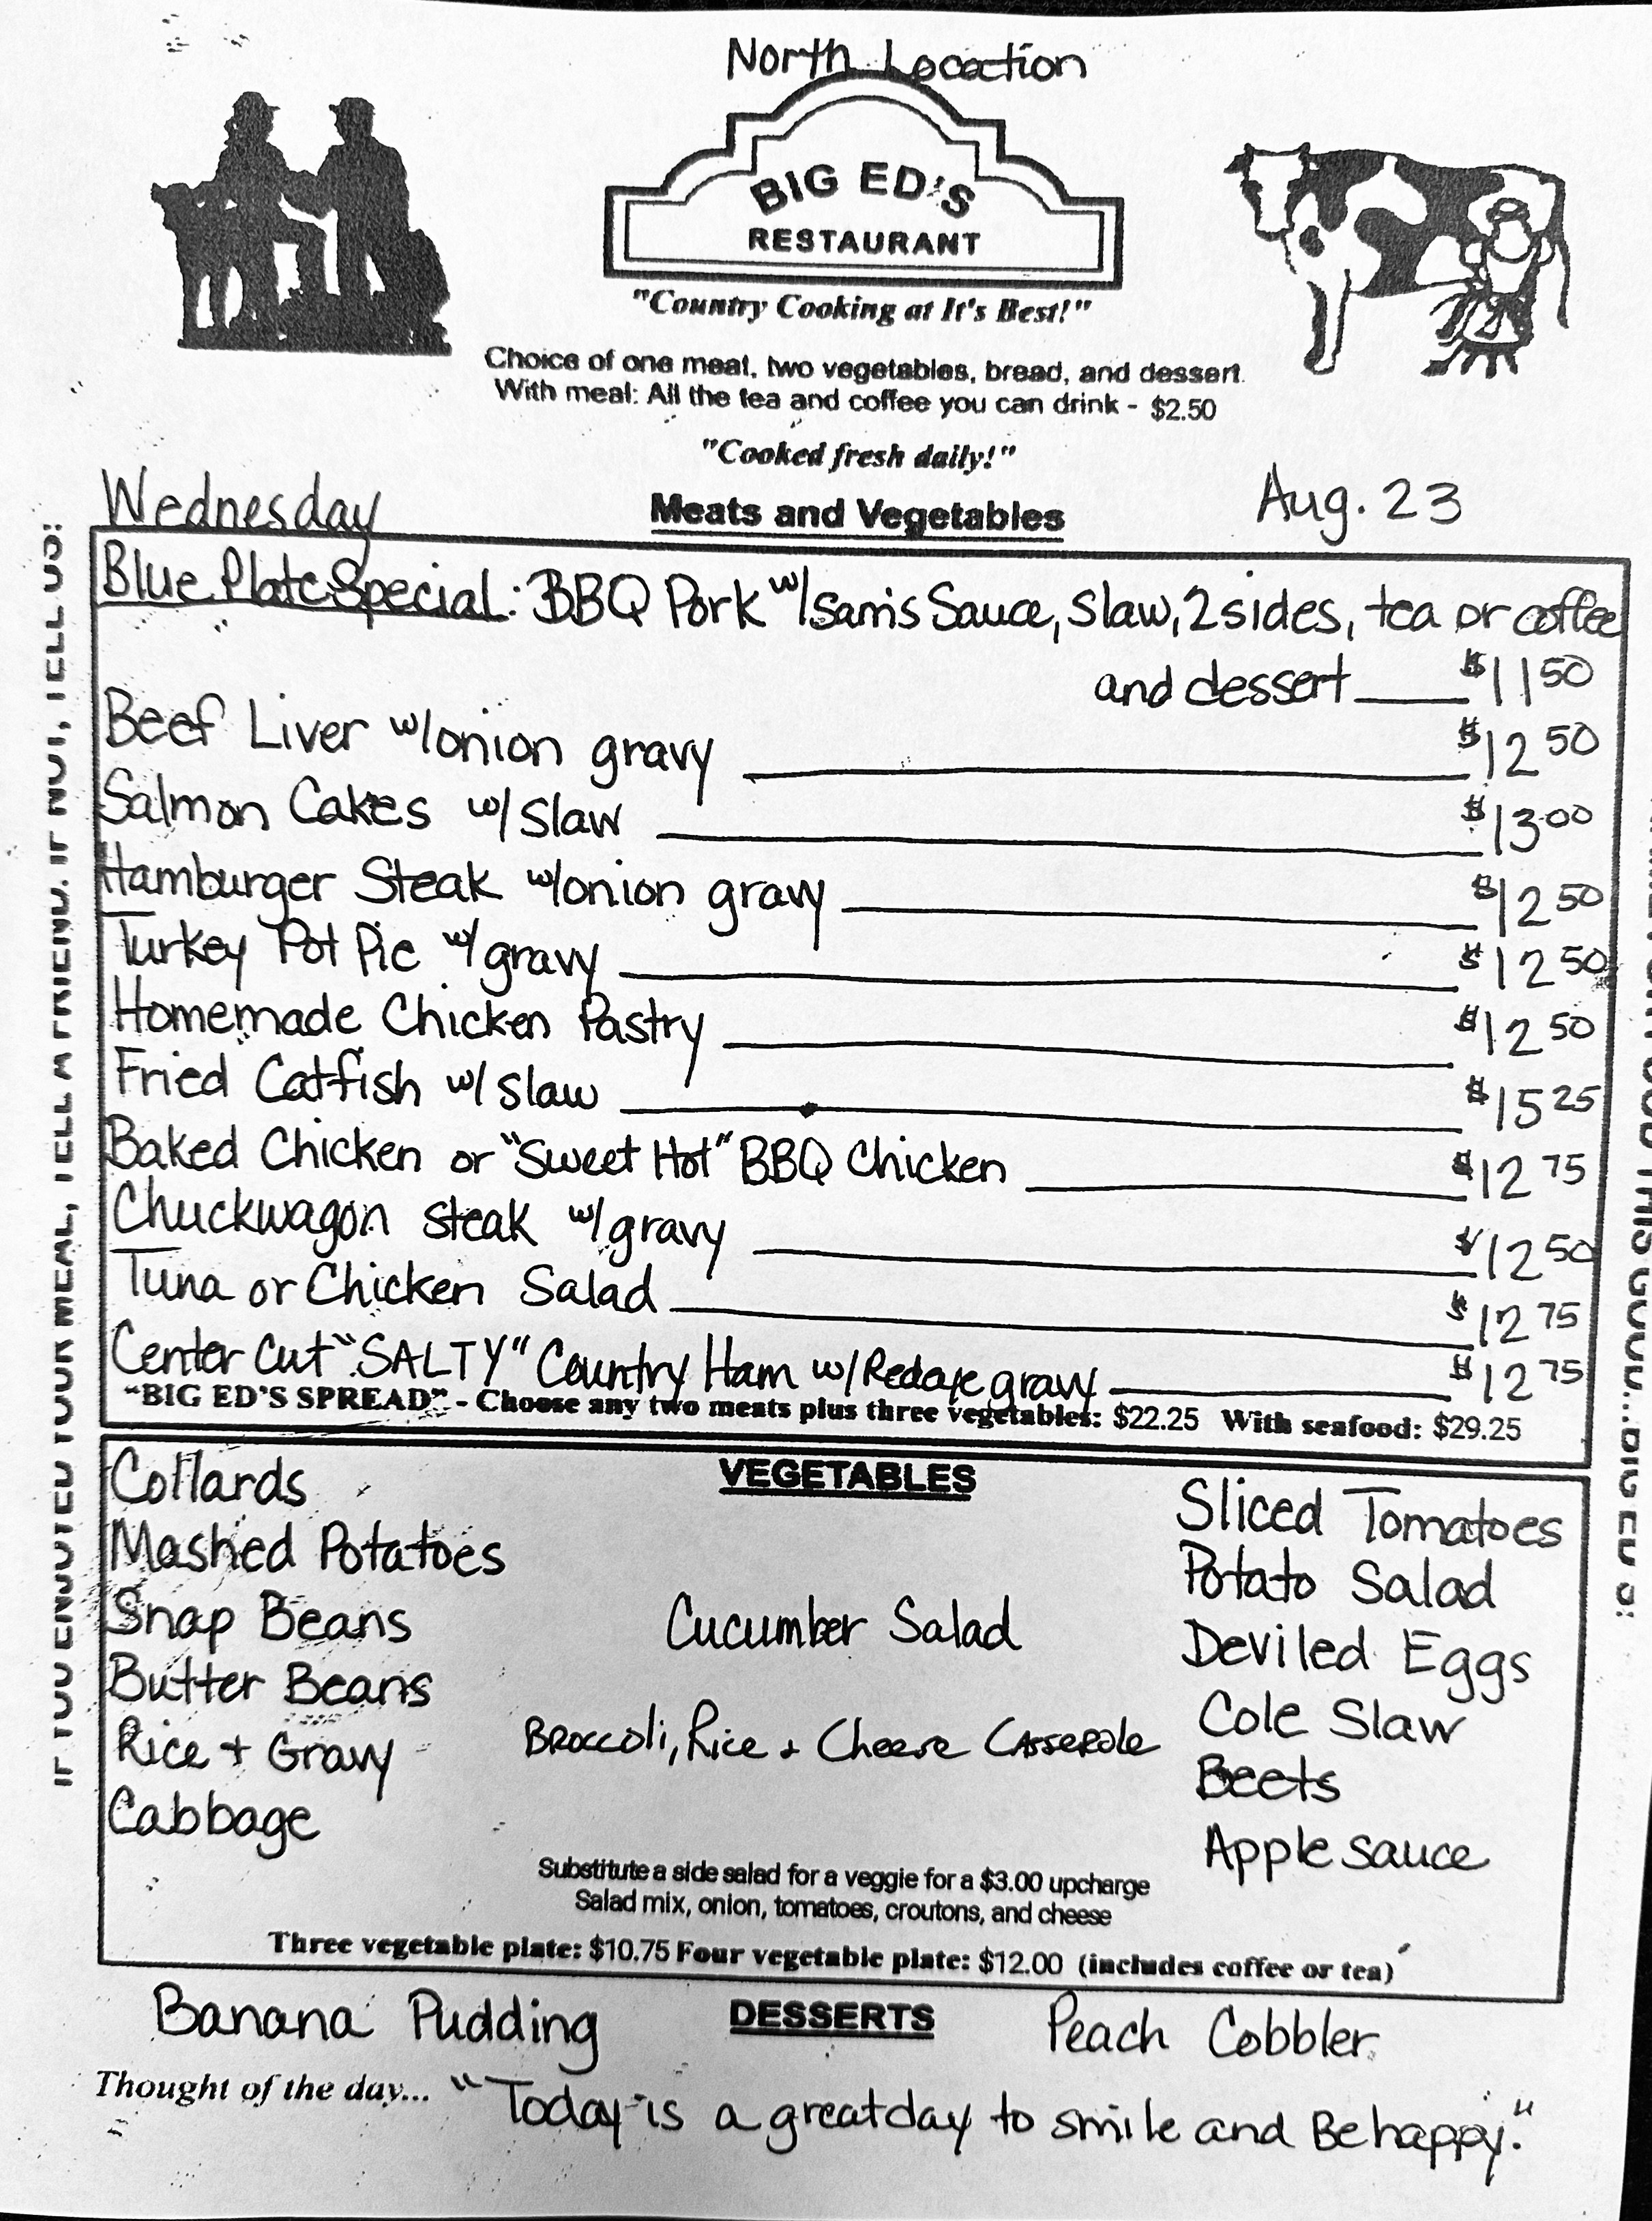 North Location
BIG ED'S
RESTAURANT
"Country Cooking at It's Best!"
Choice of one meat, two vegetables, bread, and dessert.
With meal: All the tea and coffee you can drink - $2.50
"Cooked fresh daily!"
Wednesday Meats and Vegetables Aug. 23
Blue Plate Special: BBQ Pork w/ Sam's Sauce, Slaw, 2 sides, tea or coffee
and dessert $11 50
Beef Liver w/onion gravy $12 50
Salmon Cakes w/ Slaw $13 00
Hamburger Steak w/onion gravy $12 50
Turkey Pot Pie w/ gravy $12 50
Homemade Chicken Pastry $12 50
Fried Catfish w/ Slaw $15 25
Baked Chicken or "Sweet Hot" BBQ Chicken $12 75
Chuckwagon steak w/ gravy $12 50
Tuna or Chicken Salad $12 75
Center Cut "SALTY" Country Ham w/ Redeye gravy $12 75
"BIG ED'S SPREAD" - Choose any two meats plus three vegetables: $22.25 With seafood: $29.25
VEGETABLES
Collards
Mashed Potatoes
Snap Beans
Butter Beans
Rice + Gravy
Cabbage
Cucumber Salad
Broccoli, Rice + Cheese Casserole
Sliced Tomatoes
Potato Salad
Deviled Eggs
Cole Slaw
Beets
Apple sauce
Substitute a side salad for a veggie for a $3.00 upcharge
Salad mix, onion, tomatoes, croutons, and cheese
Three vegetable plate: $10.75 Four vegetable plate: $12.00 (includes coffee or tea)
Banana Pudding DESSERTS Peach Cobbler
Thought of the day... "Today is a great day to smile and Be happy."
IF YOU ENJOYED YOUR MEAL, TELL A FRIEND. IF NOT, TELL US!
THIS GOOD...BIG ED'S!